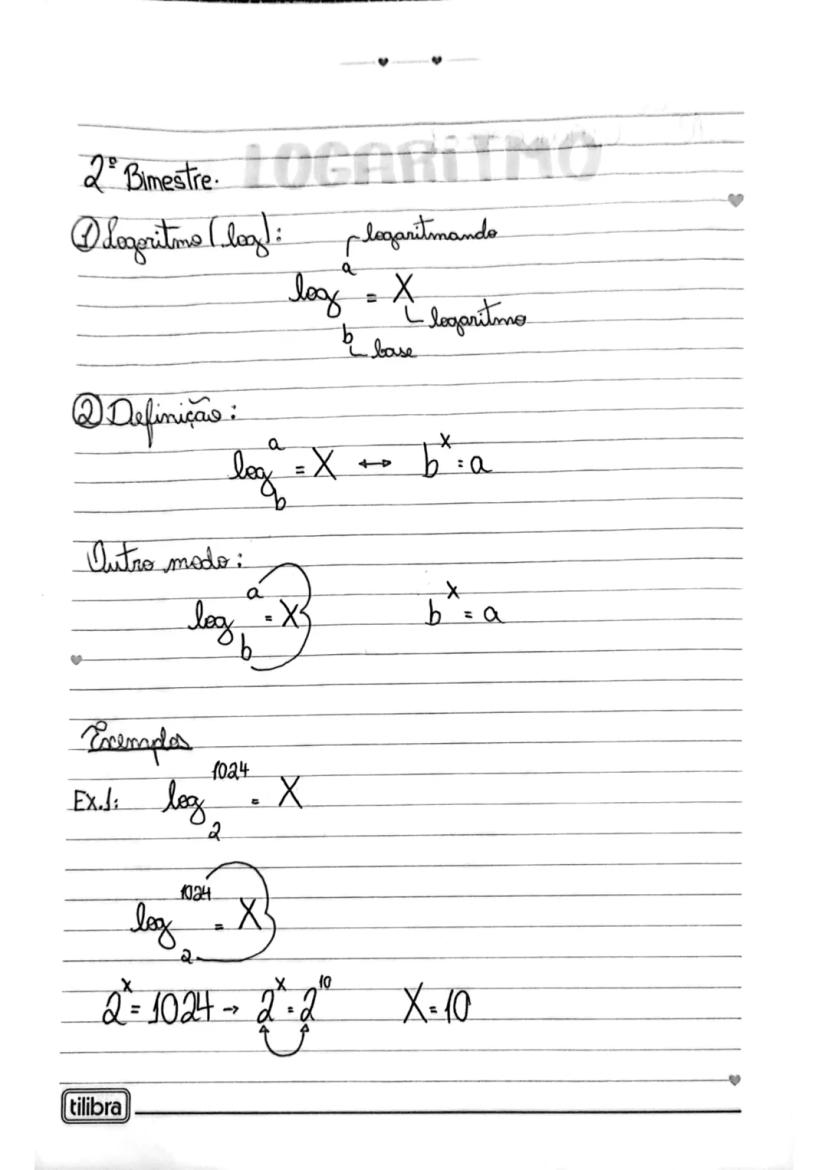 LOGARITMO
2º Bimestre.
① Logaritmo (log):
logaritmando
log_b^a = X
logaritmo
base
② Definição:
log_b^a = X ↔ b^x = a
Outro modo:
log_b^a = X b^x = a
Exemplos
Ex.1: log_2^1024 = X
log_2^1024 = X
2^x = 1024 → 2^x = 2^10 X = 10
tilibra